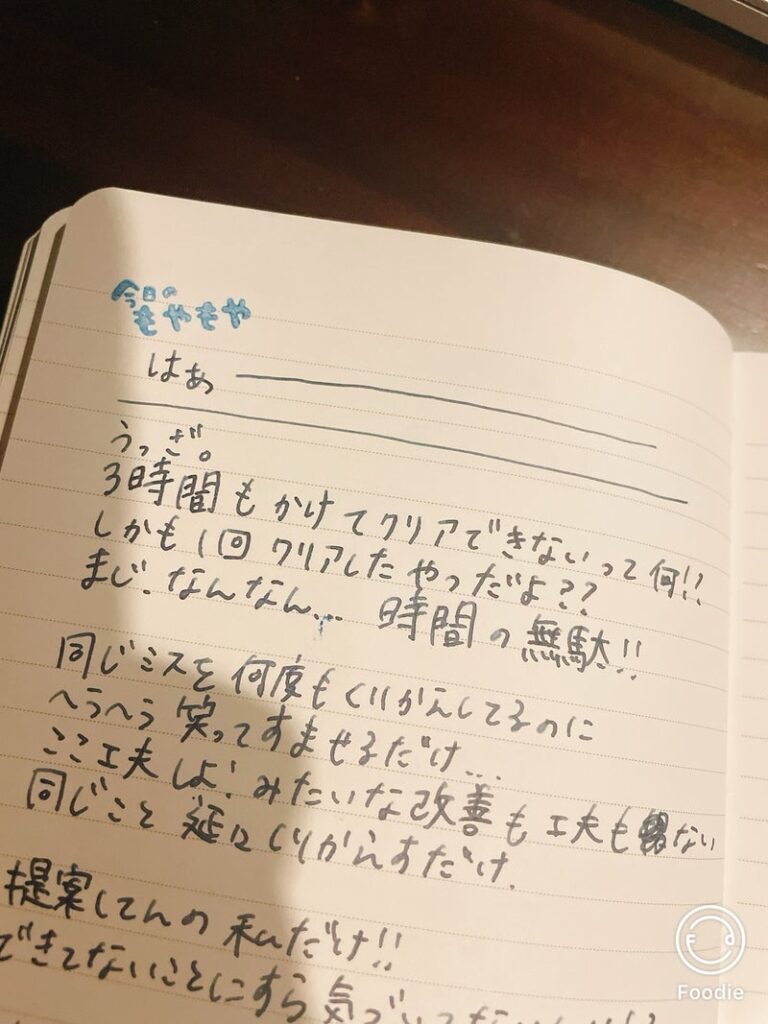 今日の
もやもや
はぁ
うっざ。
3時間もかけてクリアできないって何!!
しかも1回クリアしたやつだよ??
まじ.なんなん... 時間の無駄!!
同じミスを何度もくりかえしてるのに
へらへら笑ってすませるだけ...
ここ工夫しよ!みたいな改善も工夫もない
同じこと延にくりかえすだけ.
提案してんの私だけ!!
できてないことにすら気づいてない
Foodie